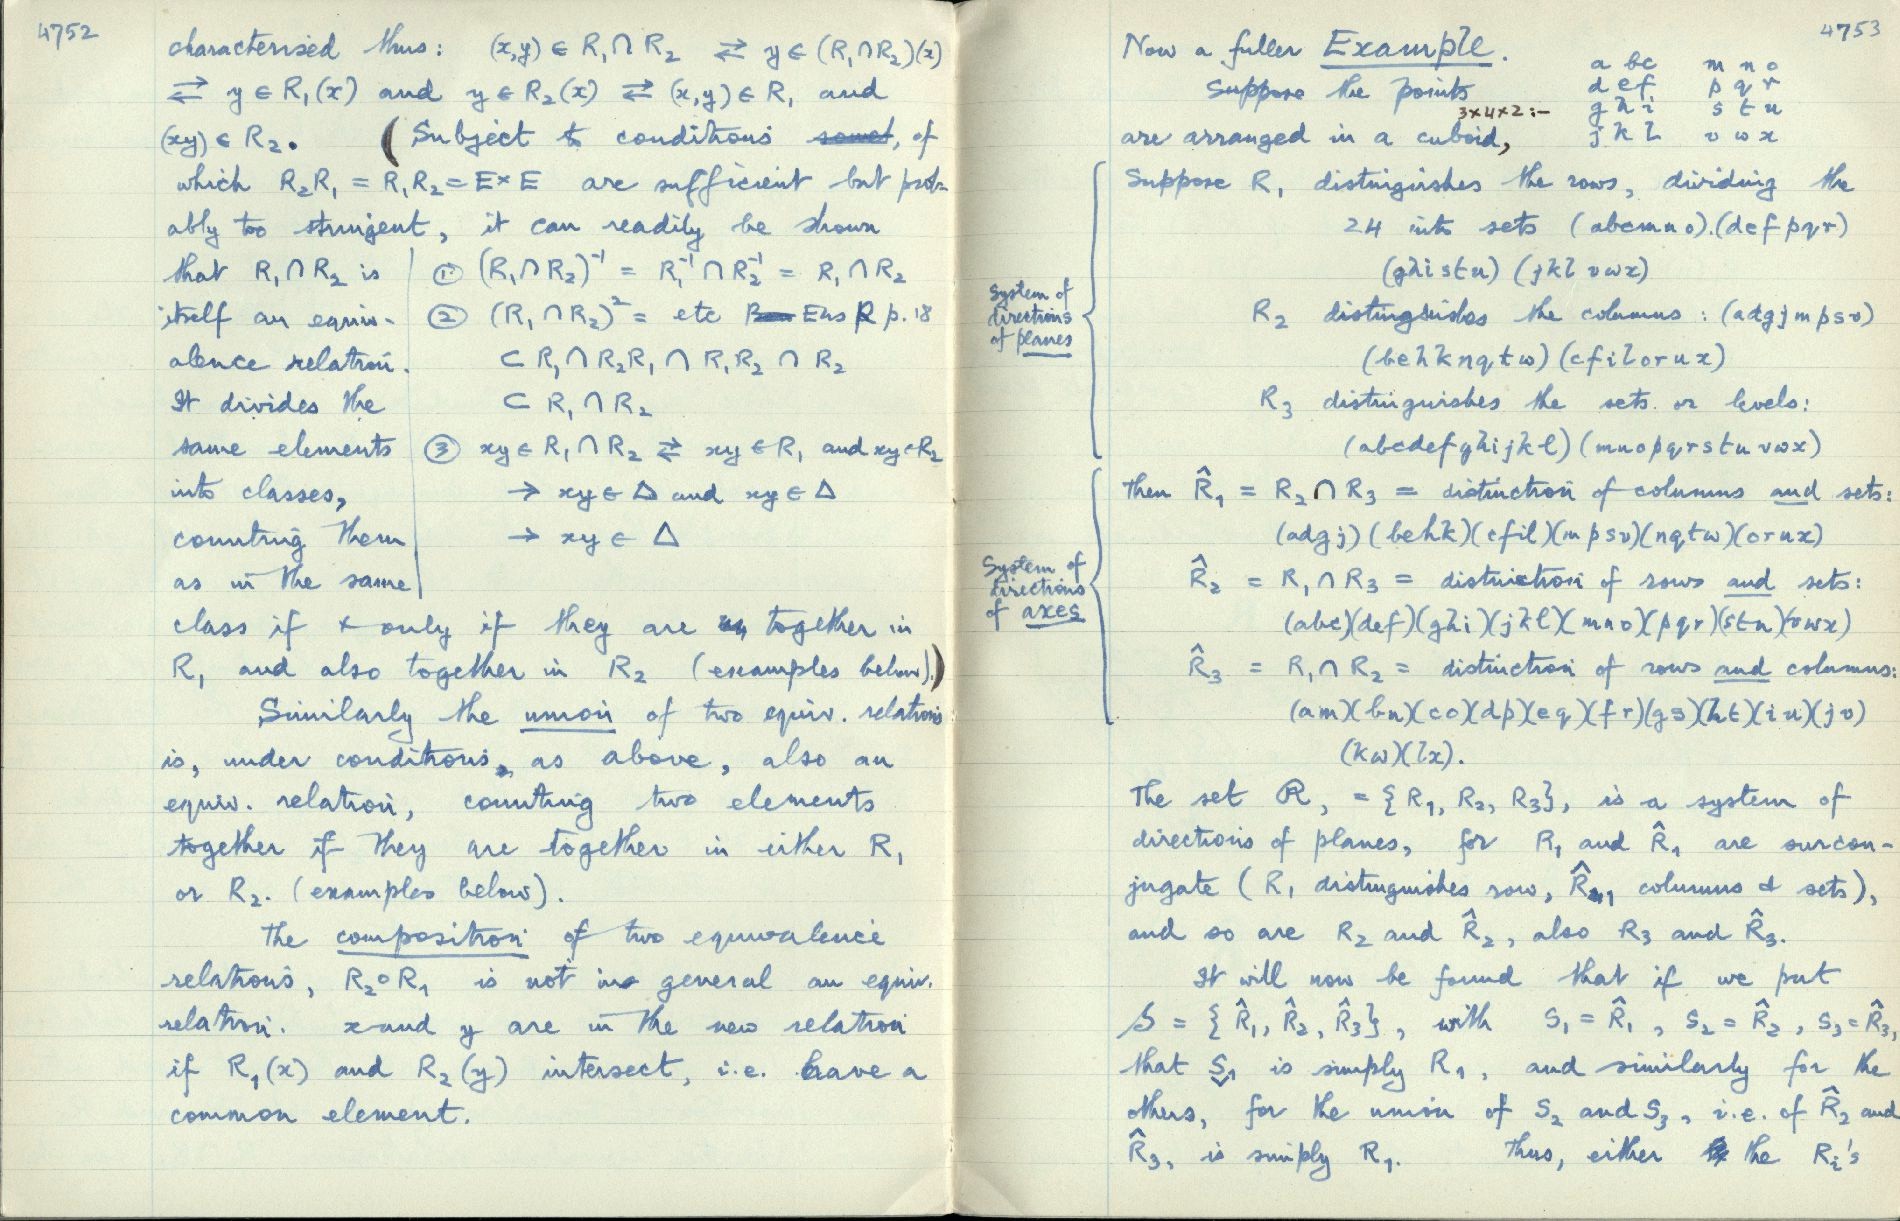 4752
characterised thus: (x,y) ∈ R₁∩R₂ ⇄ y ∈ (R₁∩R₂)(x)
⇄ y ∈ R₁(x) and y ∈ R₂(x) ⇄ (x,y) ∈ R₁ and
(xy) ∈ R₂. (Subject to conditions, of
which R₂R₁ = R₁R₂ = E×E are sufficient but prob-
ably too stringent, it can readily be shown
that R₁∩R₂ is
itself an equiv-
alence relation.
It divides the
same elements
into classes,
counting them
as in the same
① (R₁∩R₂)⁻¹ = R₁⁻¹∩R₂⁻¹ = R₁∩R₂
② (R₁∩R₂)² = etc Ens R p.18
⊂ R₁∩R₂R₁∩R₁R₂∩R₂
⊂ R₁∩R₂
③ xy ∈ R₁∩R₂ ⇄ xy ∈ R₁ and xy ∈ R₂
→ xy ∈ Δ and xy ∈ Δ
→ xy ∈ Δ
class if + only if they are together in
R₁ and also together in R₂ (examples below).)
Similarly the union of two equiv. relations
is, under conditions, as above, also an
equiv. relation, counting two elements
together if they are together in either R₁
or R₂. (examples below).
The composition of two equivalence
relations, R₂∘R₁ is not in general an equiv.
relation. x and y are in the new relation
if R₁(x) and R₂(y) intersect, i.e. have a
common element.
4753
Now a fuller Example.
Suppose the points
a b c m n o
d e f p q r
g h i s t u
j k l v w x
3×4×2:-
are arranged in a cuboid,
System of
directions
of planes
Suppose R₁ distinguishes the rows, dividing the
24 into sets (abcmno).(defpqr)
(ghistu) (jklvwx)
R₂ distinguishes the columns: (adgjmpsv)
(behknqtw) (cfilorux)
R₃ distinguishes the sets or levels:
(abcdefghijkl) (mnopqrstuvwx)
System of
directions
of axes
Then R̂₁ = R₂∩R₃ = distinction of columns and sets:
(adgj)(behk)(cfil)(mpsv)(nqtw)(orux)
R̂₂ = R₁∩R₃ = distinction of rows and sets:
(abc)(def)(ghi)(jkl)(mno)(pqr)(stu)(vwx)
R̂₃ = R₁∩R₂ = distinction of rows and columns:
(am)(bn)(co)(dp)(eq)(fr)(gs)(ht)(iu)(jv)
(kw)(lx).
The set R, = {R₁, R₂, R₃}, is a system of
directions of planes, for R₁ and R̂₁ are ourcon-
jugate (R₁ distinguishes row, R̂₁ columns & sets),
and so are R₂ and R̂₂, also R₃ and R̂₃.
It will now be found that if we put
S = {R̂₁, R̂₂, R̂₃}, with S₁ = R̂₁, S₂ = R̂₂, S₃ = R̂₃,
that Š₁ is simply R₁, and similarly for the
others, for the union of S₂ and S₃, i.e. of R̂₂ and
R̂₃, is simply R₁. Thus, either the Rᵢ's